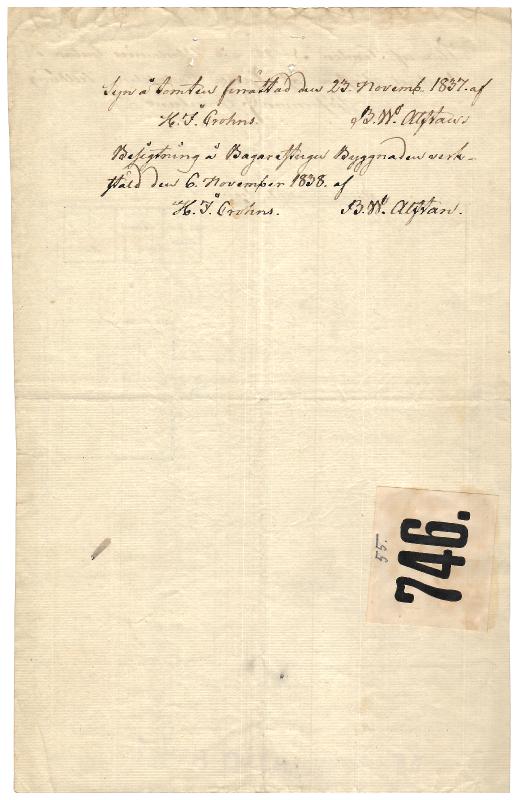 Syn å tomten förrättad den 23. Novemb. 1837. af
H. J. Crohns. B. Wd. Alftan.
Besigtning å Bagarestugu Byggnaden verk-
stäld den 6. November 1838. af
H. J. Crohns. B. Wd. Alftan.
55.
746.